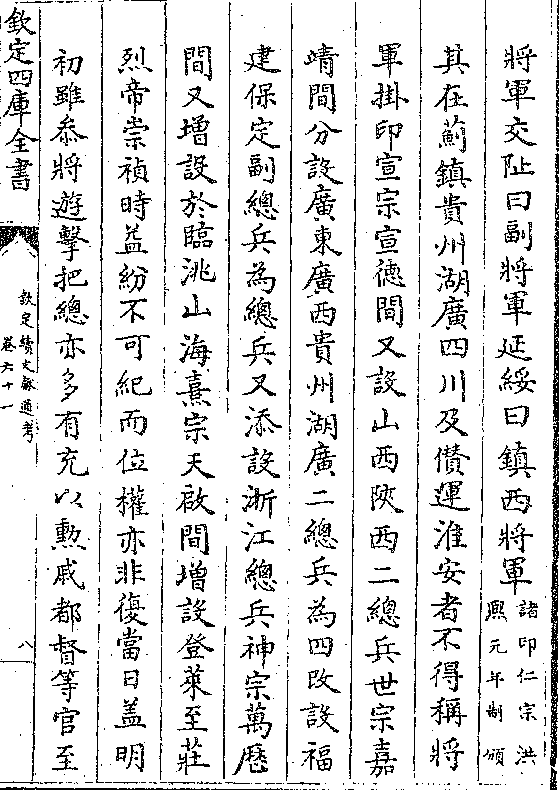 將軍交阯曰副將軍延綏曰鎮西將軍諸印仁宗洪
熙元年制頒
其在薊鎮貴州湖廣四川及儹運淮安者不得稱將
軍掛印宣宗宣德間又設山西陜西二總兵世宗嘉
靖間分設廣東廣西貴州湖廣二總兵為四改設福
建保定副總兵為總兵又添設浙江總兵神宗萬厯
間又增設於臨洮山海熹宗天啟間增設登萊至莊
烈帝崇禎時益紛不可紀而位權亦非復當日蓋明
初雖叅將遊擊把總亦多有充以勲戚都督等官至
欽定四庫全書
欽定續文獻通考
卷六十一
八